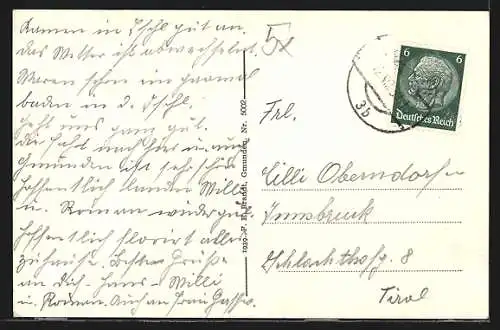 Kamen in Ischl gut an.
Das Wetter ist abwechselnd.
Waren schon ein paarmal
baden in d. Ischl.
Geht uns ganz gut.
Die Fahrt nach hier u. nach
Gmunden ist sehr schön
Hoffentlich landen Willi
u. Roman wieder gut.
Hoffentlich floriert alles
zuhause. Grüße
an Dich - Hans - Willi
u. Roman. Auch an Frau
1939 P. H. Brandt, Gmunden, Nr. 5002
5x
3b
6 6
Deutsches Reich
Frl.
Cilli Oberndorfer
Innsbruck
Schlachthofg. 8
Tirol